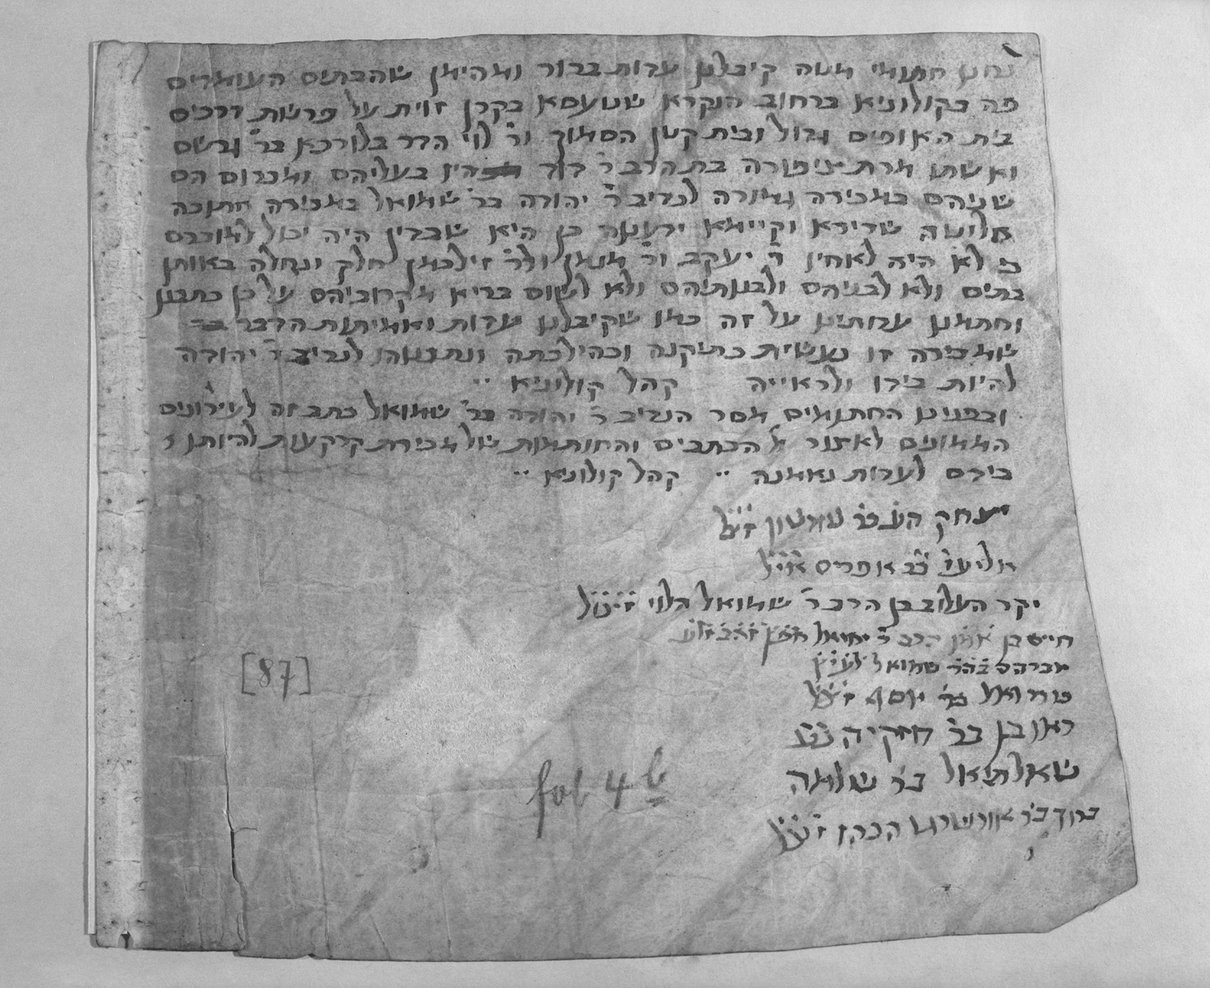 נחנו חתומי מטה קיבלנו עדות ברור ומהימן שהבתים העומדים
פה בקולוניא ברחוב הנקרא שטעסא בקרן זוית על פרשת דרכים
בית האופים גדול ובית קטן הסמוך ור' לוי הדר בלורכא בר' גרשם
ואשתו מרת ציפורה בת הרב ר' דוד בעליהם ומכרום הם
שניהם במכירה גמורה לנדיב ר' יהודה בר' שמואל במכירה חתוכה
חליטה שרירא וקיימא ידענו כן היא שבדין היה יכול למוכרם
כי לא היה לאחיו ר' יעקב ור' מנמן ולר' זילכמן חלק ונחלה באותן
בתים ולא לבניהם ולבנותיהם ולא לשום בריא מקרוביהם על כן כתבנו
וחתמנו עדותינו על זה כמו שקיבלנו עדות ואמיתות הדבר
שמכירה זו נעשית כתיקנה וכהילכתה ונתננוהו לנדיב ר' יהודה
להיות בידו ולראייה קהל קולוניא
ובפנינו החתומים מסר הנדיב ר' יהודה בר' שמואל כתב זה לעירונים
הממונים לאצור כל הכתבים והחותמות של מכירת קרקעות להיותן
בידם לעדות נאמנה קהל קולוניא
יצחק בר' שמשון זצ"ל
אליעזר בר' אפרים
יקר העלוב בן הרב ר' שמואל הלוי זצ"ל
חיים בן הרב ר' יחיאל
אברהם בה"ר שמואל
בר' יוסף זצ"ל
ראובן בר' חזקיה
שאלתיאל בר' שלמה
ברוך בר' אורשרגא הכהן זצ"ל
[87]
fol 4 b